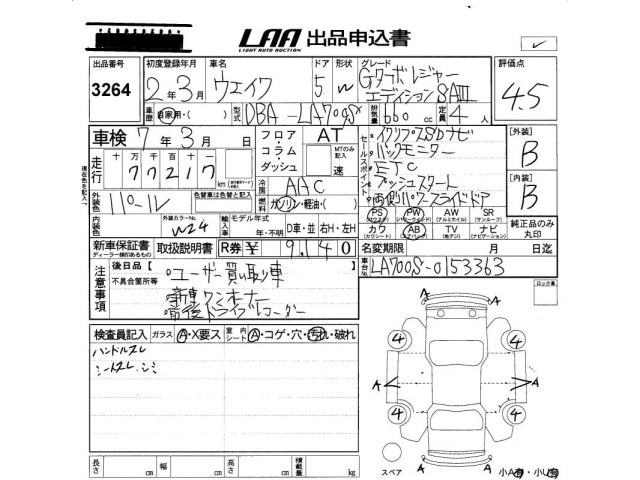 LAA 出品申込書
LIGHT AUTO AUCTION
出品番号
3264
初度登録年月
2年3月
車名
ウエイク
ドア
5
形状
W
グレード
Gターボレジャー
エディションSAⅢ
評価点
4.5
車歴
自家用・( )
型式
DBA-LA700S
排気量
660 cc
定員
4人
車検 7年3月 日
フロア・コラム・ダッシュ
AT
MTのみ記入
速
セールスポイント
イクリプスSDナビ
バックモニター
ETC
プッシュスタート
両側パワースライドドア
[外装]
B
[内装]
B
純正品のみ丸印
走行
十万 万 千 百 十
77217
km
現在色を記入
冷房
AAC
外装色
色替車は色替と記入
燃料
ガソリン・軽油・( )
PS
(パワステ)
PW
(パワーウインド)
AW
(アルミホイル)
SR
(サンルーフ)
カワ
(カワシート)
AB
(エアバッグ)
TV
(地デジ)
ナビ
(ナビゲーション)
内装色
外装カラーNo.
W24
輸入車
モデル年式
年・不明
D車・並 右H・左H
新車保証書
ディーラー捺印あるもの
取扱説明書
R券 ¥ 9,140
名変期限 月 日迄
車台No.
LA700S-0153363
注意事項
後日品( )
不具合箇所等
ユーザー買い取り車
前後ドライブレコーダー
ロック車
検査員記入
ガラス A・X要ス
室内シート A・コゲ・穴・汚れ・破れ
ハンドルスレ
シートスレ.シミ
4
4
A
A
4
4
A
A
スペア
小A・小U
長さ cm
幅 cm
高さ cm
積載量 kg